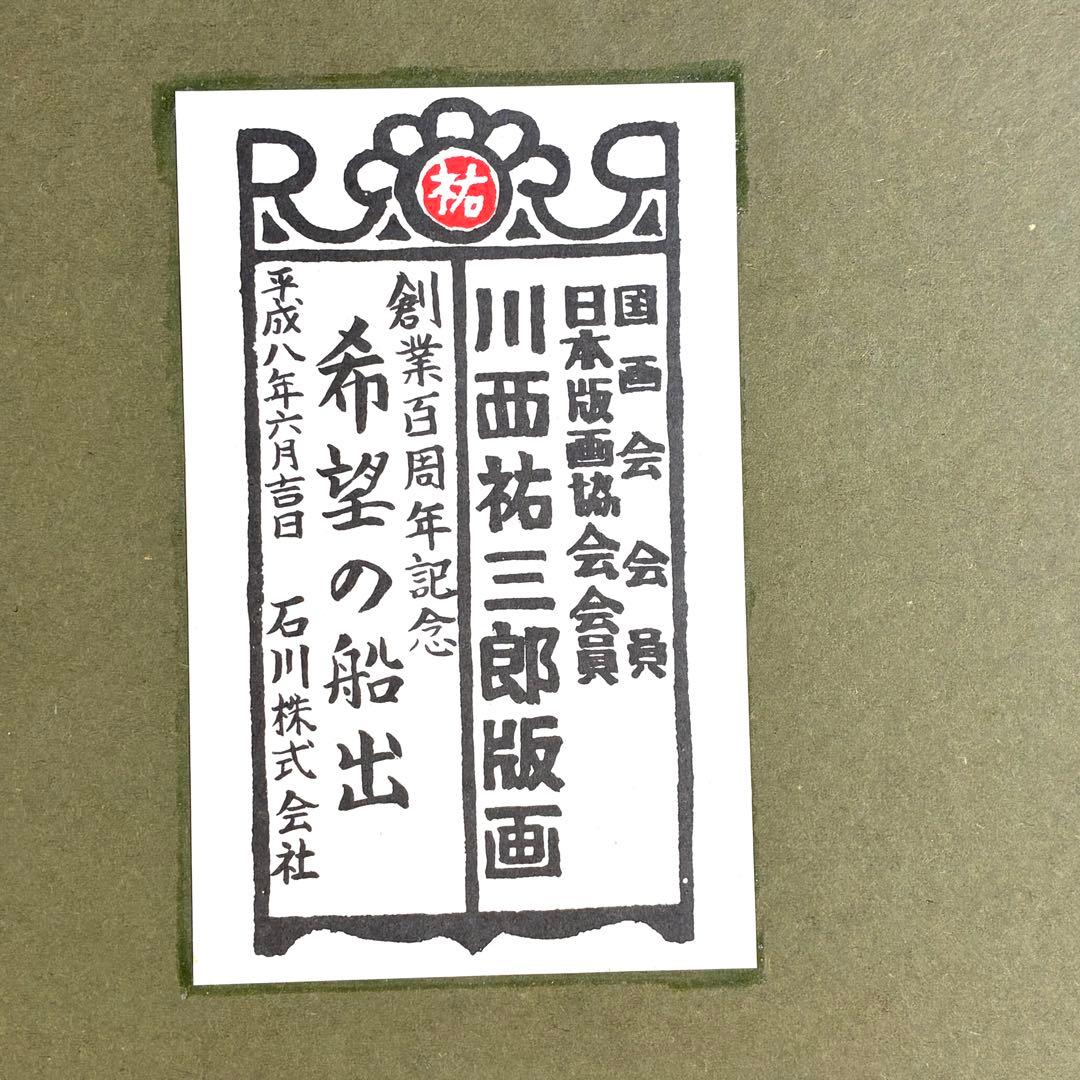 祐
国画会会員
日本版画協会会員
川西祐三郎版画
創業百周年記念
希望の船出
平成八年六月吉日 石川株式会社